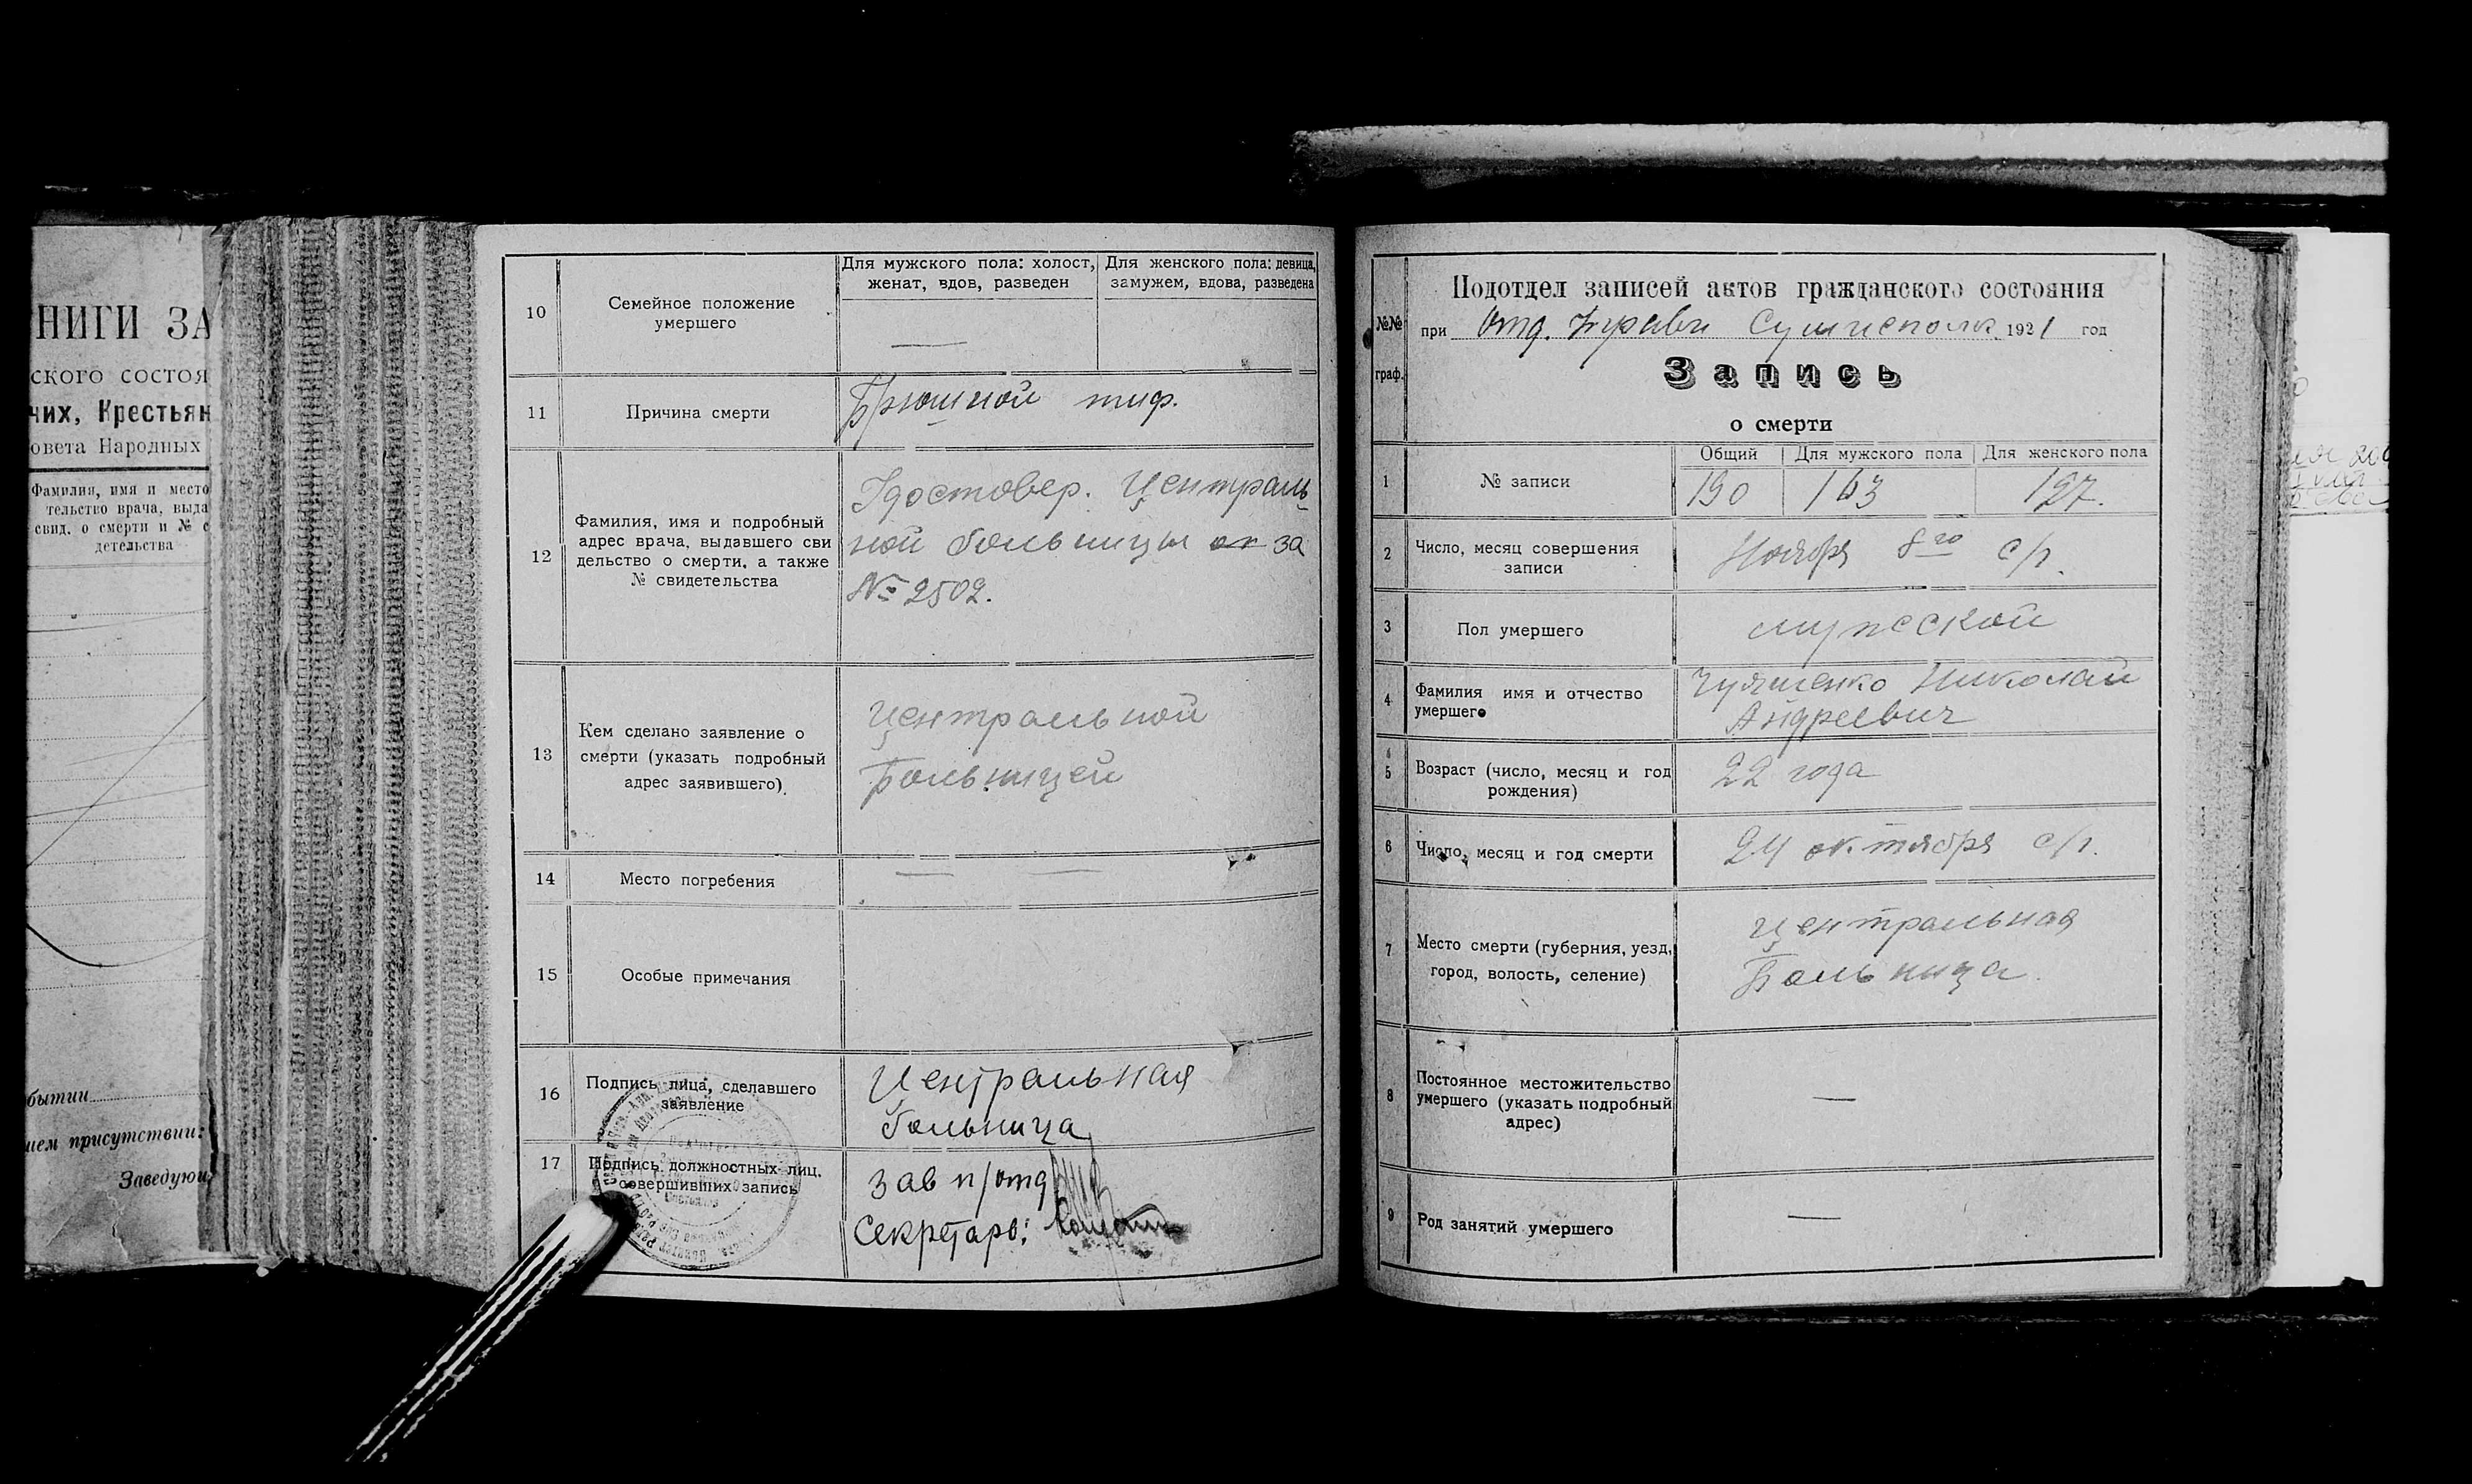 НИГИ ЗА
ского состоя
чих, Крестьян
овета Народных
Фамилия, имя и место
тельство врача, выда
свид. о смерти и № с
детельства
бытии
ием присутствии:
Заведую
10 Семейное положение умершего
Для мужского пола: холост, женат, вдов, разведен
Для женского пола: девица, замужем, вдова, разведена
—
11 Причина смерти
Брюшной тиф.
12 Фамилия, имя и подробный
адрес врача, выдавшего сви
дельство о смерти, а также
№ свидетельства
Удостовер. Централь
ной больницы за
№ 2502.
13 Кем сделано заявление о
смерти (указать подробный
адрес заявившего).
Центральной
Больницей
14 Место погребения
— —
15 Особые примечания
16 Подпись лица, сделавшего
заявление
Центральная
больница
17 Подпись должностных лиц,
совершивших запись
Зав п/отд
Секретарь:
№№ граф.
Подотдел записей актов гражданского состояния
при Отд. Управ 1921 год
Запись
о смерти
Общий Для мужского пола Для женского пола
1 № записи
190 163 127.
2 Число, месяц совершения
записи
Ноября 8го с/г.
3 Пол умершего
мужской
4 Фамилия имя и отчество
умершего
Николай
Андреевич
5 Возраст (число, месяц и год
рождения)
22 года
6 Число, месяц и год смерти
24 октября с/г.
7 Место смерти (губерния, уезд,
город, волость, селение)
Центральная
Больница.
8 Постоянное местожительство
умершего (указать подробный
адрес)
—
9 Род занятий умершего
—